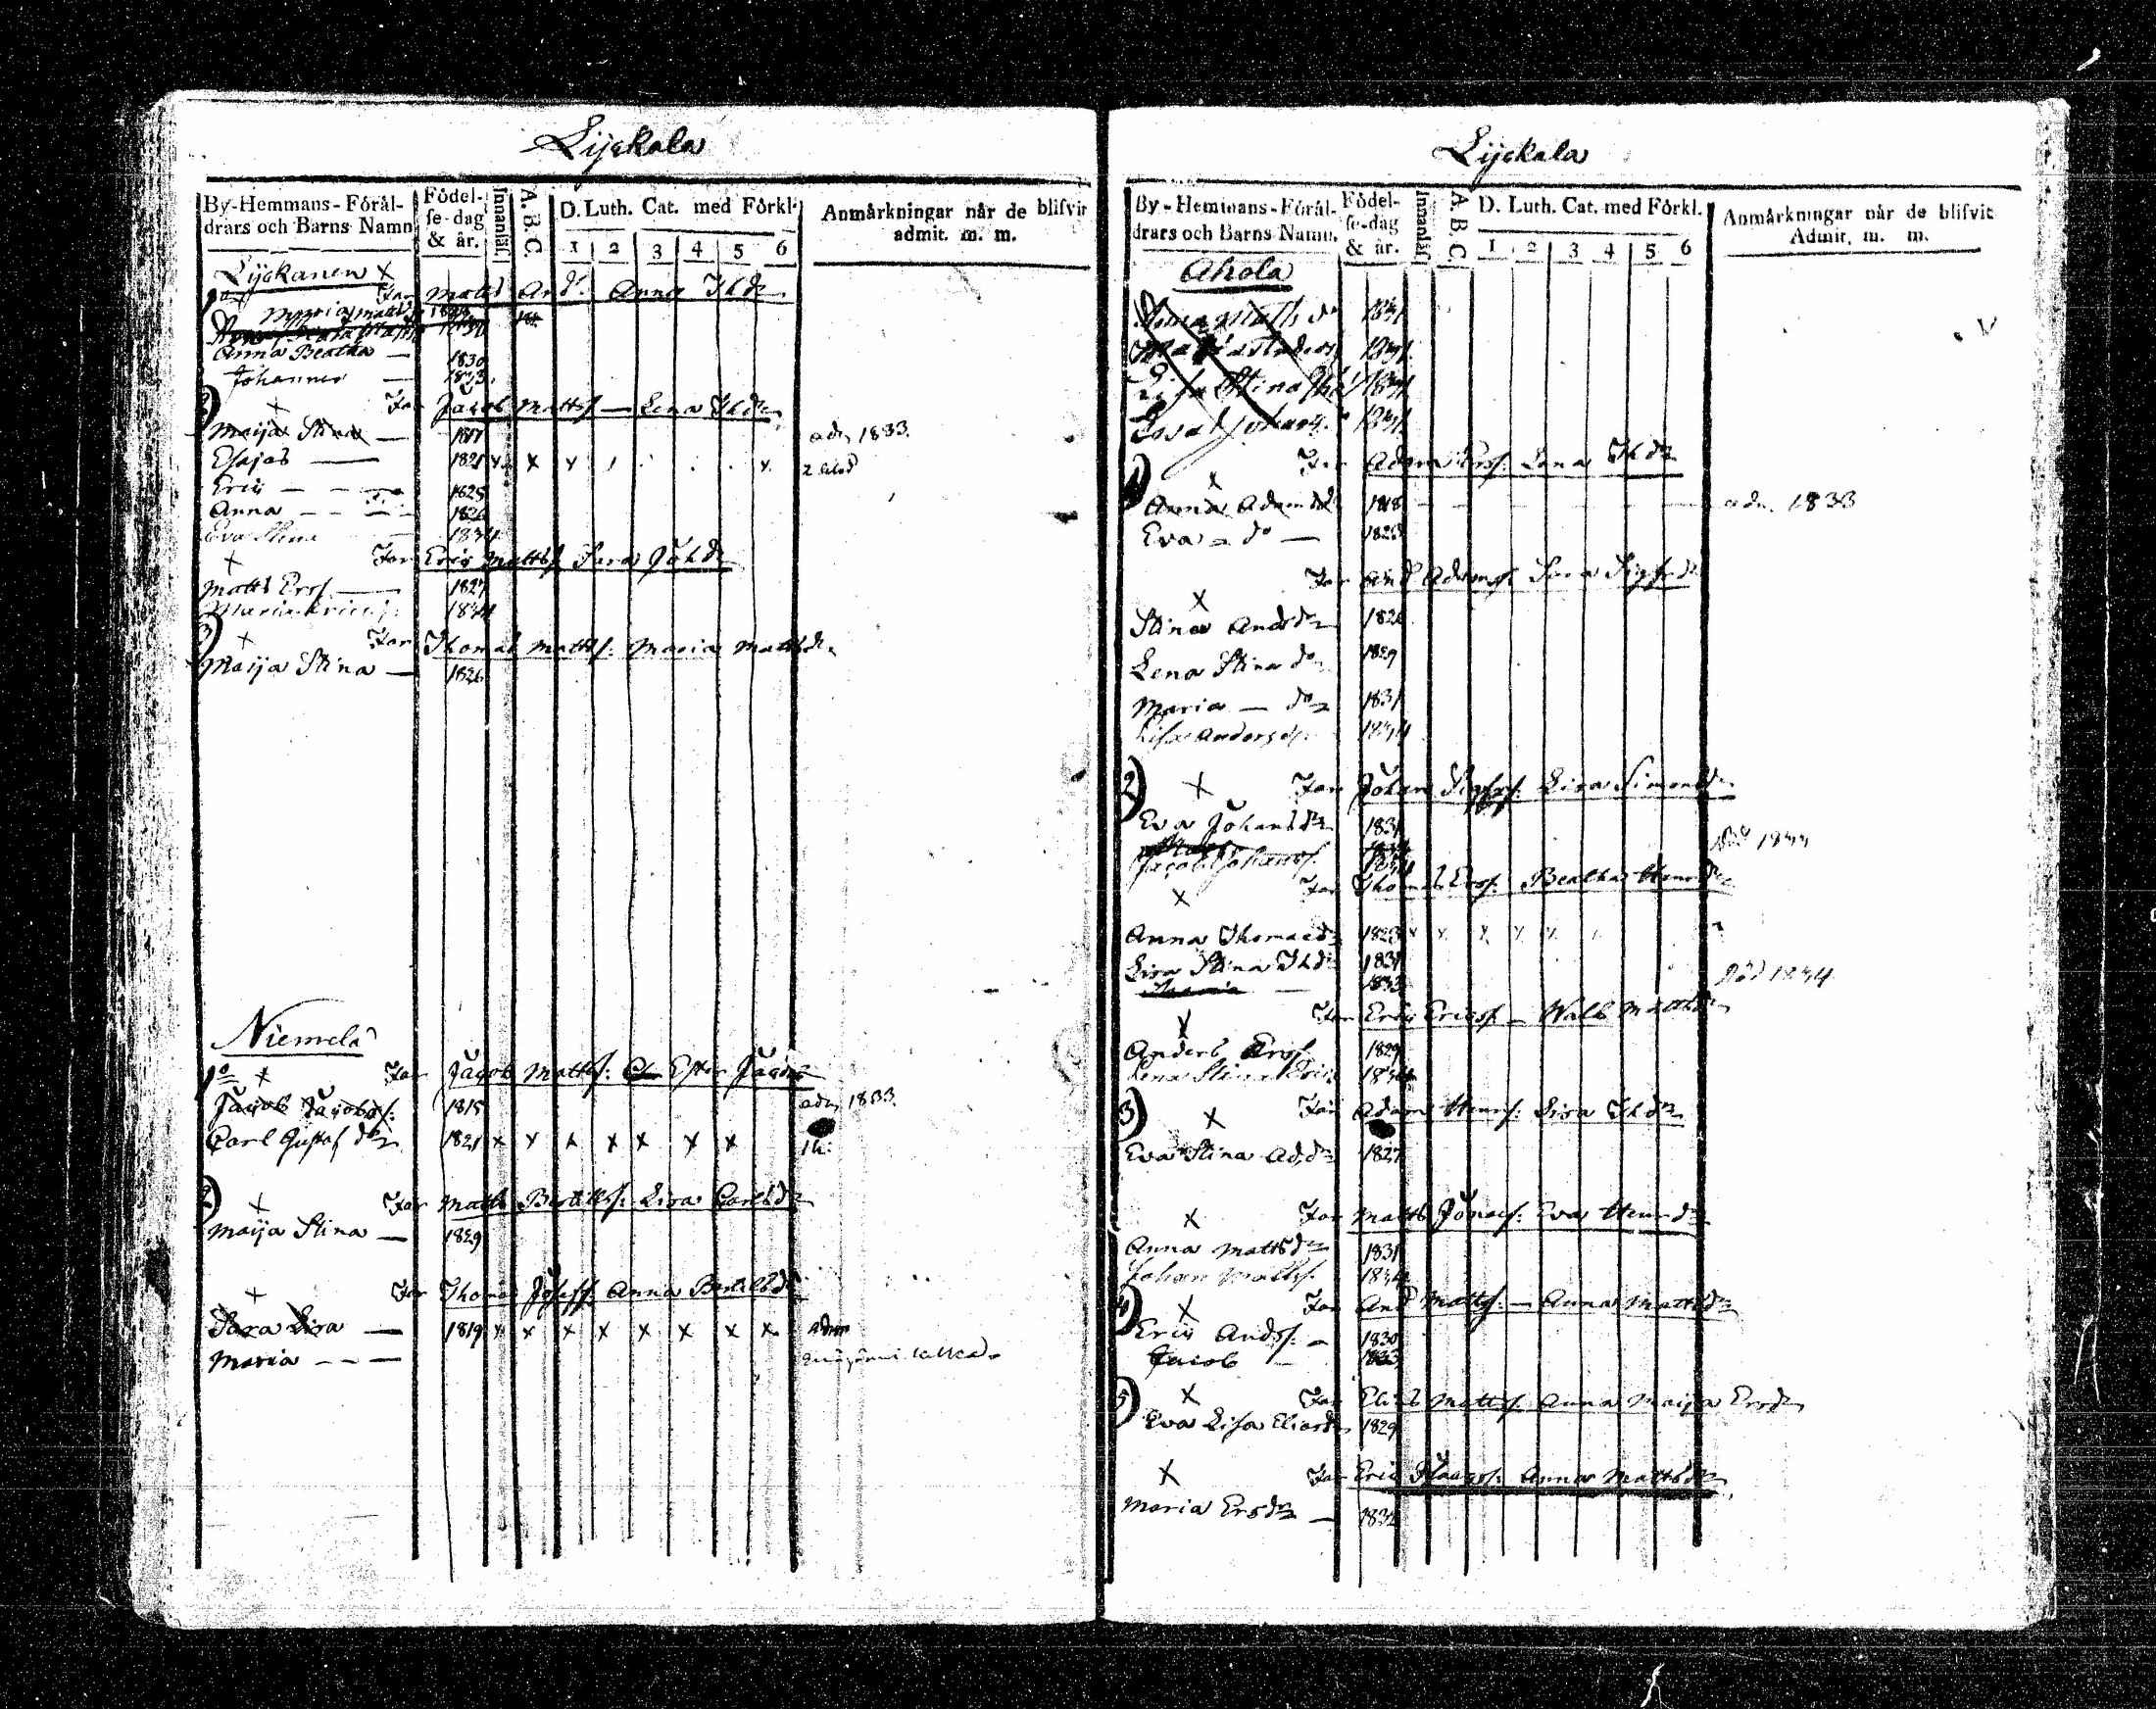 Lijckala
By-Hemmans-Förål-drars och Barns Namn
Födel-se-dag & år.
Innanläs.
A. B. C.
D. Luth. Cat. med Förkl.
1 2 3 4 5 6
Anmårkningar når de blifvit admit. m. m.
Lijckanen x
Far Matts And. Anna Thdr
Maria Mattsd
Anna Beatha — 1830
Johannes — 1833
2) x Far Jacob Mattss — Lena Thdr
Maija Stina — 1817 adm 1833.
Esajas — 1821 x x x x
Eric — 1825
Anna — 1826
Eva Stina 1834
x Far Eric Mattss Sara Johdr
Matts Erss — 1827
Maria 1834
3) x Far Thomas Mattss. Maria Mattsdr
Maija Stina — 1826
Niemelä
1o x Far Jacob Mattss. Ester Jacdr
Jacob Jacobss. 1815 adm 1833.
Carl Gustaf do 1821 x x x x x x x
2) x Far Matts Bertilss. Lisa Carlsdr
Maija Stina — 1829
x Far Thomas Josefss. Anna Bertilsdr
Sara Lisa — 1819 x x x x x x x x adm
Maria — —
Lijckala
By-Hemmans-Förål-drars och Barns Namn.
Födel-se-dag & år.
Innanläs.
A B C
D. Luth. Cat. med Förkl.
1 2 3 4 5 6
Anmårkningar når de blifvit Admit. m. m.
Ahola
1831
1831
Lisa Stina 1831
1831
1) x Far Adam Erss. Lena Thdr
Anna Adamsd 1818 adm. 1833
Eva — do —
Far And Adamss. Sara Sigfrdr
x
Stina Andsdr 1826
Lena Stina do 1829
Maria — do 1831
Lisa Andersdr 1834
2) x Far Johan Sigfrss. Lisa Simonsdr
Eva Johansdr 1831
Jacob Johanss. 1834
x Far Thomas Erss. Beatha Henrdr
Anna Thomasdr 1823 x x x x x
Lisa Stina Thdr 1831
1833 död 1834
x Far Eric Ericss — Walb Mattsdr
Anders Erss 1829
Lena Stina 1834
3) x Far Adam Henrs. Lisa Thdr
Eva Stina Ad.dr 1827
x Far Matts Jönass. Eva Henrdr
Anna Mattsdr 1831
Johan Mattss. 1834
4) x Far And Mattss. — Anna Mattsdr
Eric Andss. — 1830
Jacob — 1833
5) x Far Elias Mattss. Anna Maija Ersdr
Eva Lisa Eliasdr 1829
x Far Eric Anna Mattsdr
Maria Ersdr — 1832